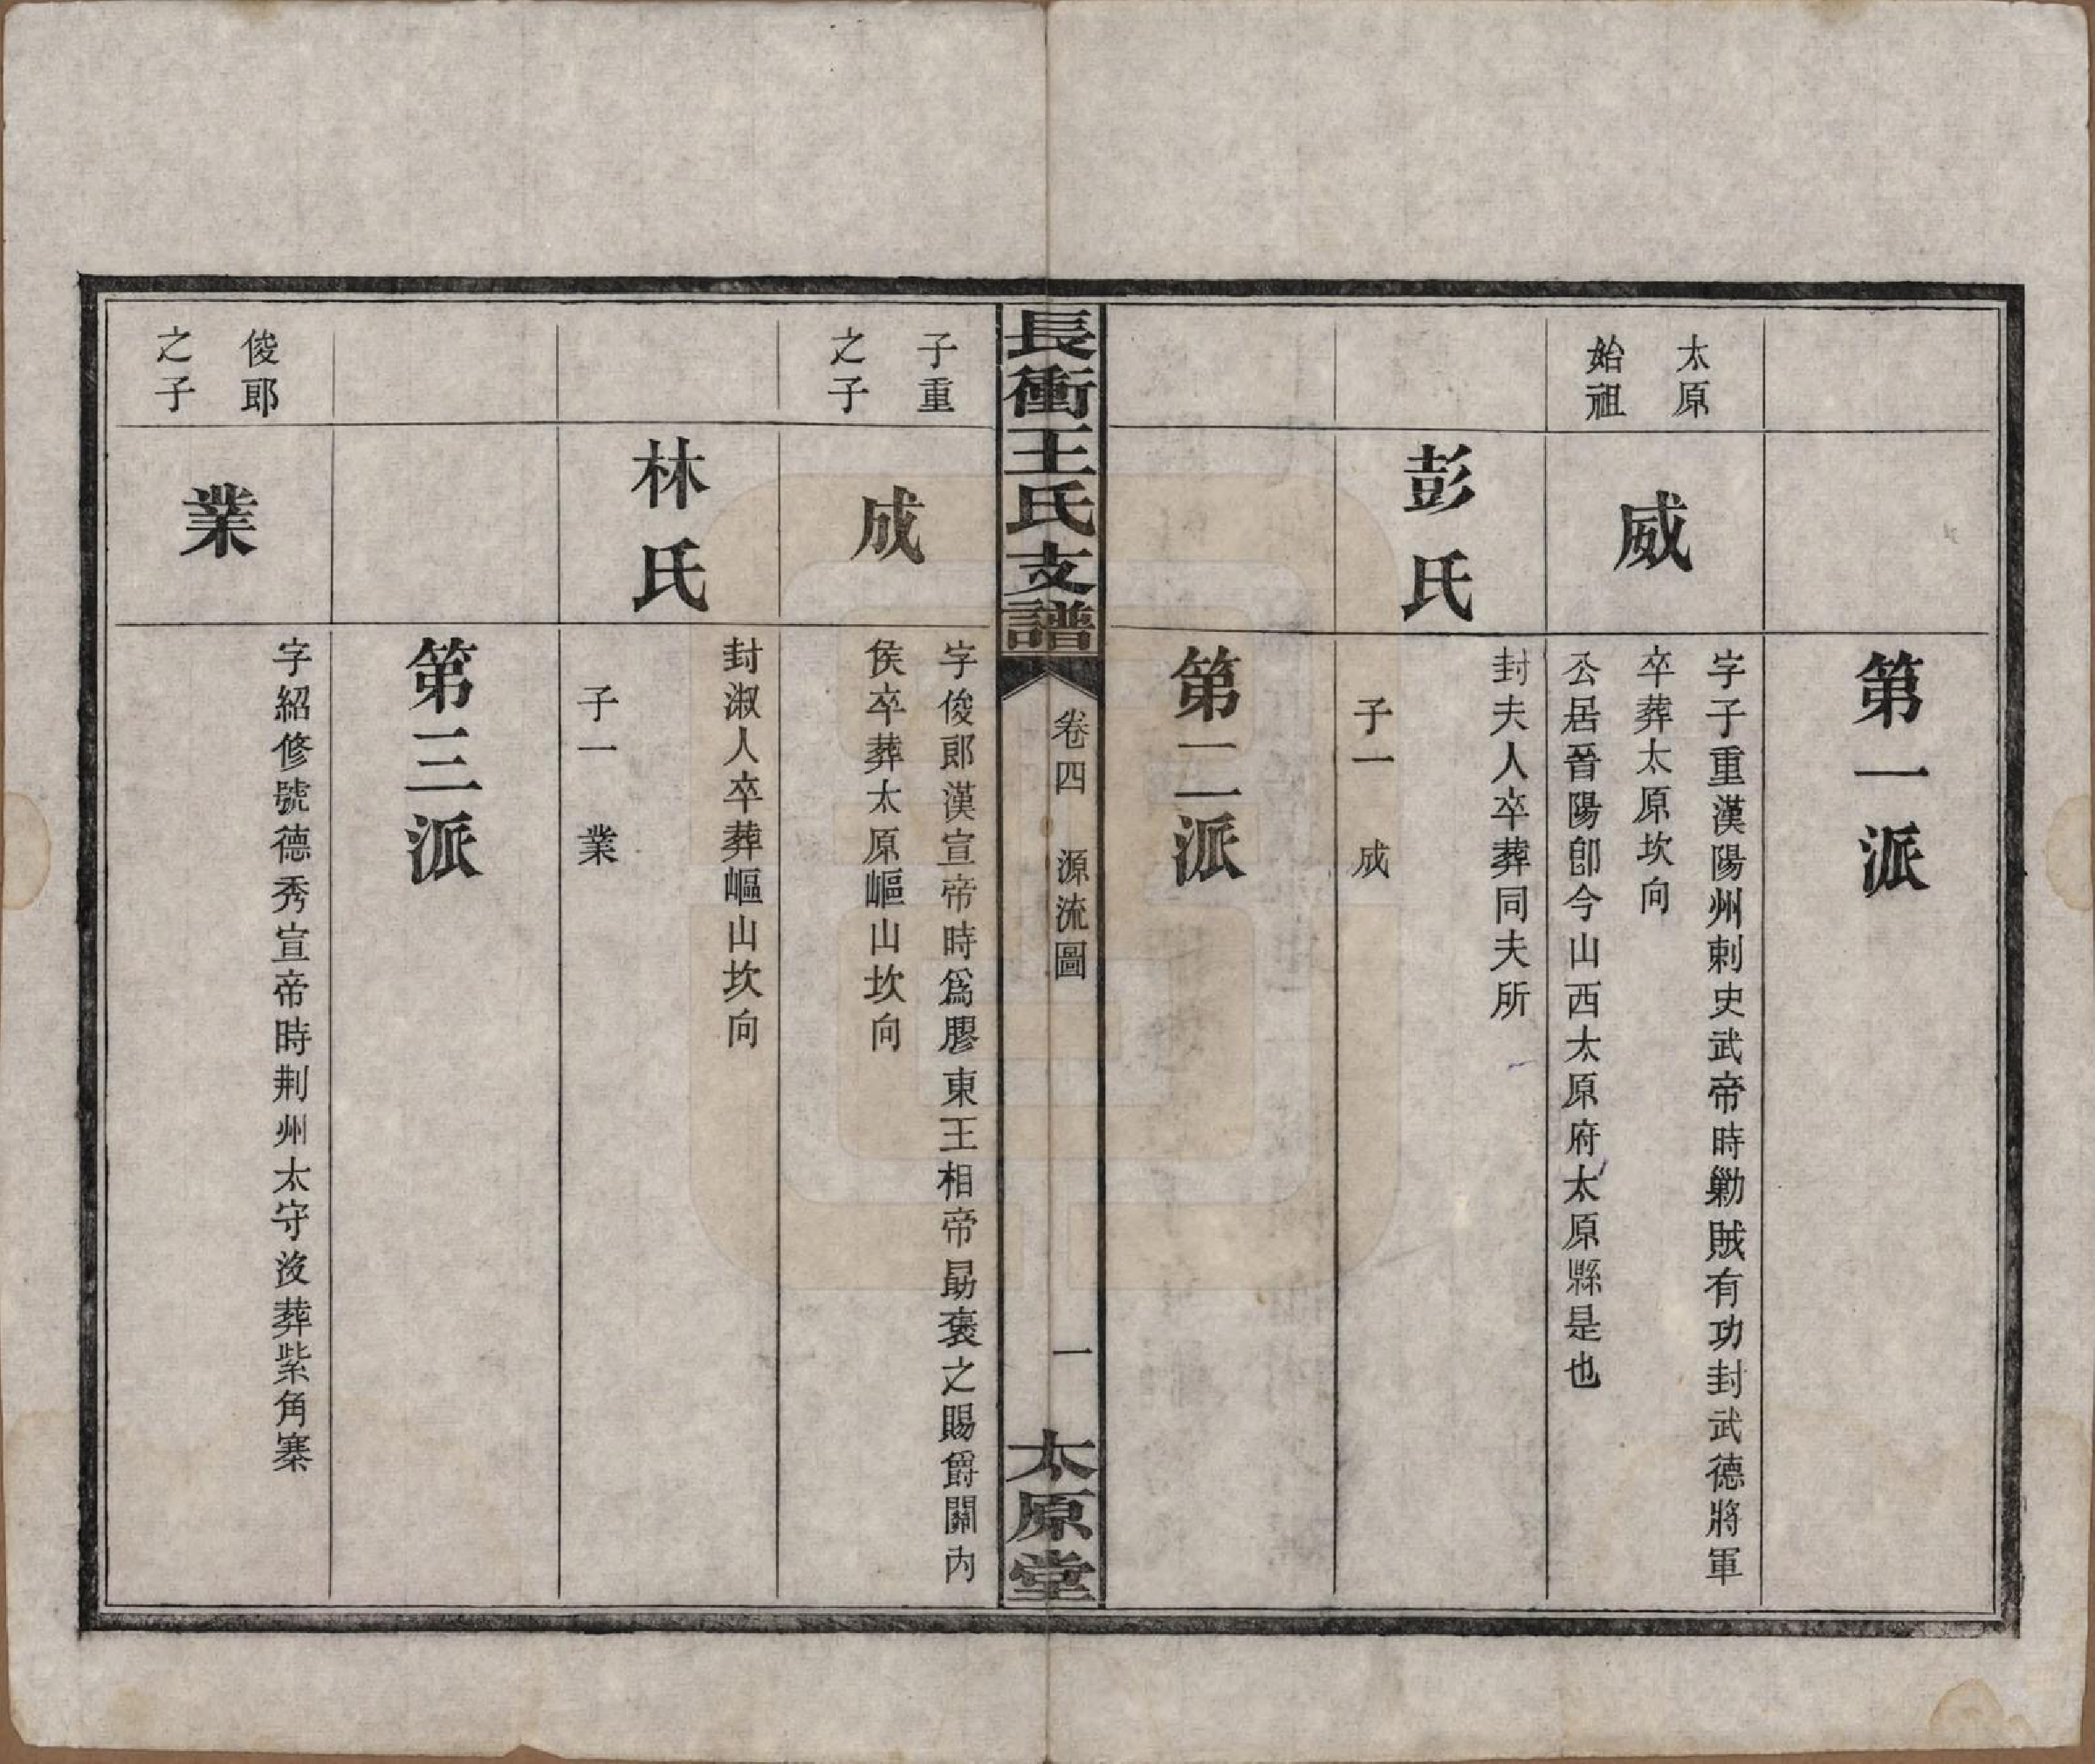 第一派
太原
始祖
威
字子重漢陽州刺史武帝時勦賊有功封武德將軍
卒葬太原坎向
公居晉陽卽今山西太原府太原縣是也
彭氏
封夫人卒葬同夫所
子一　成
第二派
長衝王氏支譜
卷四　源流圖
一
太原堂
子重
之子
成
字俊郎漢宣帝時爲膠東王相帝勗褒之賜爵關內
侯卒葬太原嶇山坎向
林氏
封淑人卒葬嶇山坎向
子一　業
第三派
俊郎
之子
業
字紹修號德秀宣帝時荆州太守沒葬紫角寨